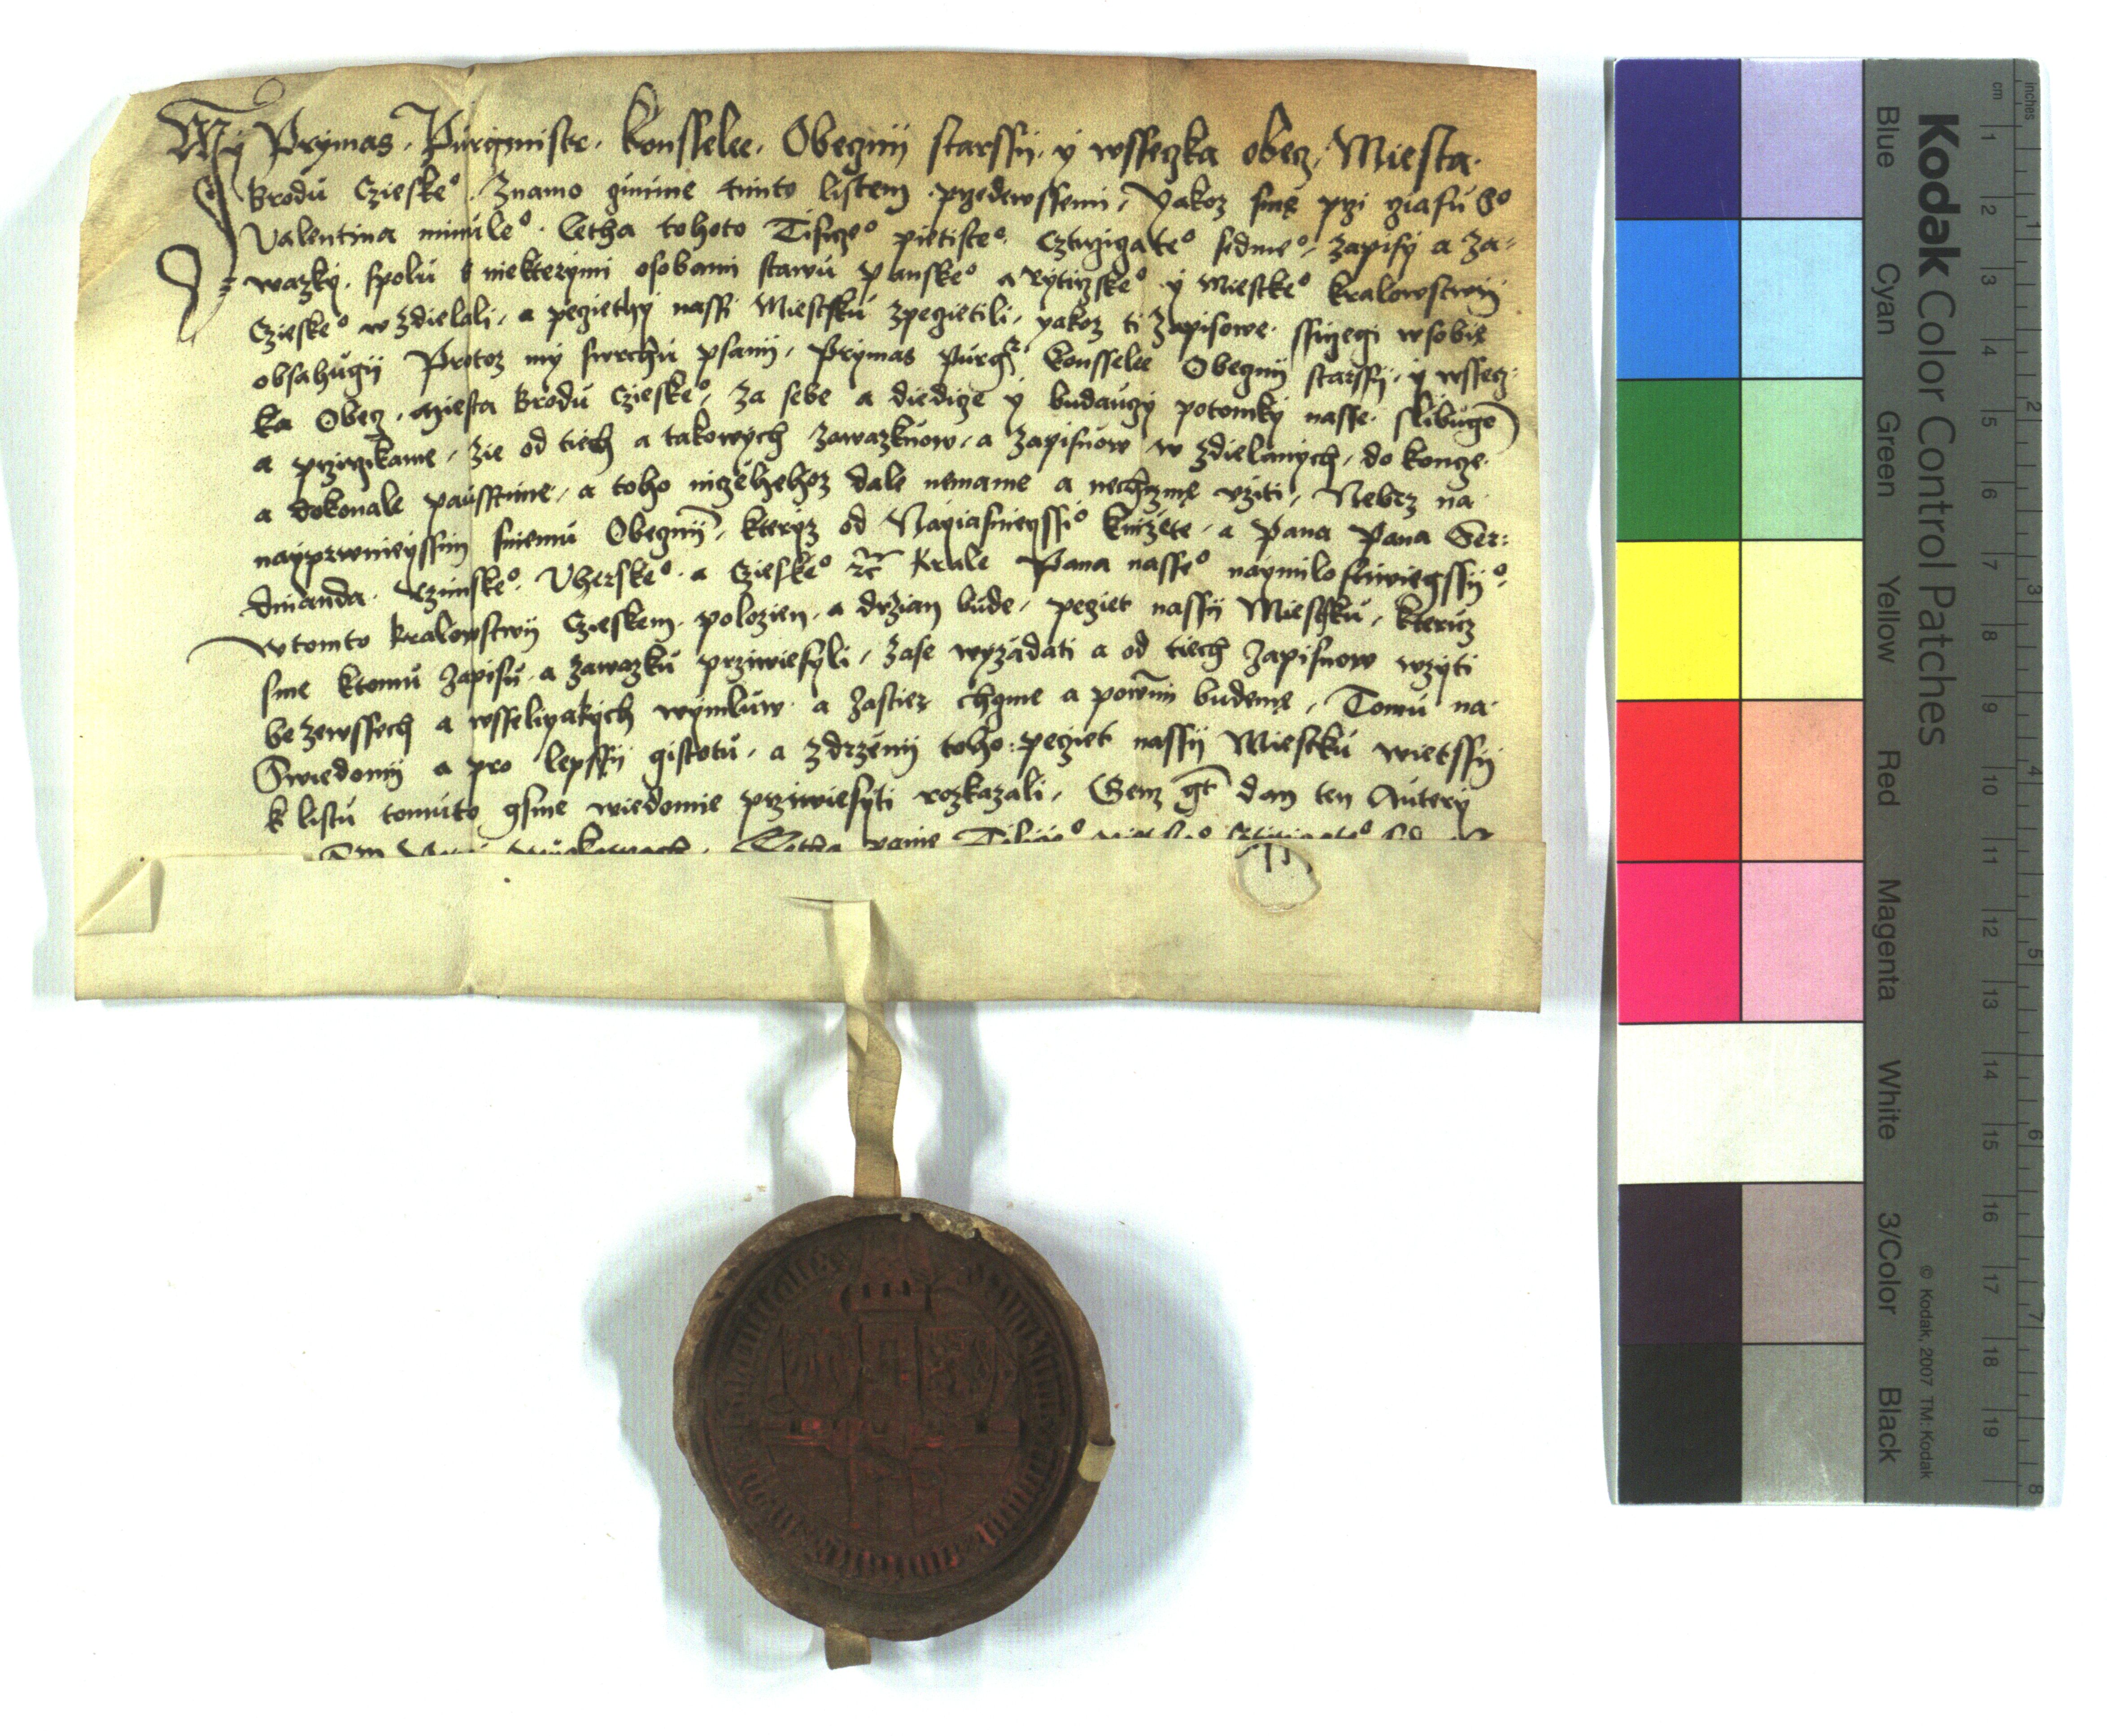 My Prymas, Purgmistr, Konsselee, Obeczny starssy, y wsseczka obecz, Miesta
Brodu Czieske°, Znamo czinime tiimto listem przedewssemi, Yakoz smę przi cziasu S°
Valentina minule°, Letha tohoto Tisicze° pietiste°, Cztirzigate° sedme°, zapisy a Za=
wazky, spolu s niekterymi osobami stawu panske° a Rytirzske° y Miestke° Kralowstwij
Czieske° wzdielali, a peczethy nassi Miestsku zpeczietili, yakoz ti Zapisowe ssirzegi wsobie
obsahugij Protoz my swrchu psanij, Prymas Purgr Konsselee Obecznij starssij, y wssecz=
ka Obecz, Miesta Brodu Czieske°, Za sebe a diedicze y budauczy potomky nasse, slibugē
a przirzikame, zie od tiech a takowych Zawazkuow, a Zapisuow wzdielanych, do koncze
a dokonale paustime, a toho niczehehoz dale nemame a nechczmę vziti, Nebrz na
nayprwnieyssim sniemu Obecznij, kteryz od Nayiasnieyssi° Knizete, a Pana Pana Fer=
dinanda Rzimske°, Vherske°, a Czieske° zc Krale Pana nasse° naymilostiwieyssij°,
wtomto Kralowstwij Czieskem, polozien, a drzian bude, peczet nassij Miestsku, kteruz
sme ktomu Zapisu, a Zawazku przиwiesyli, Zase wyzadati a od tiech Zapisuow wzyti
bezewssech a wsselikyakych wymluw, a Zastierz chczme a powinni budemę, Tomu na
Swiedomij a pro lepssij gistotu, a zdrzenij toho: peczet nassij Miestku wietssij
k listu tomuto gsme wiedomie przиwiesyti rozkazali, Genz gt dan ten Autery
Letha Panie Tisicze°
Kodak Color Control Patches
© Kodak, 2007 TM: Kodak
Blue Cyan Green Yellow Red Magenta White 3/Color Black
cm 1 2 3 4 5 6 7 8 9 10 11 12 13 14 15 16 17 18 19
inches 1 2 3 4 5 6 7 8